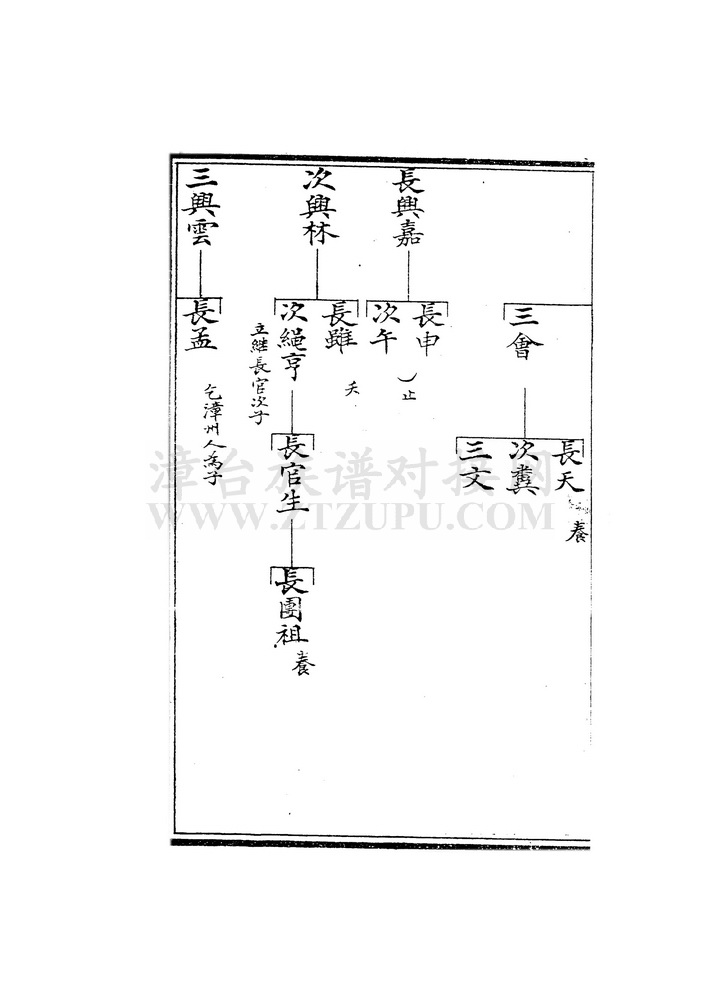 長興嘉
次興林
三興雲
三會
長申
次午
止
長雖
夭
次繩亨
立継長官次子
長孟
乞漳州人為子
長天
養
次糞
三文
長官生
長團祖
養
漳台族谱对接网
WWW.ZTZUPU.COM